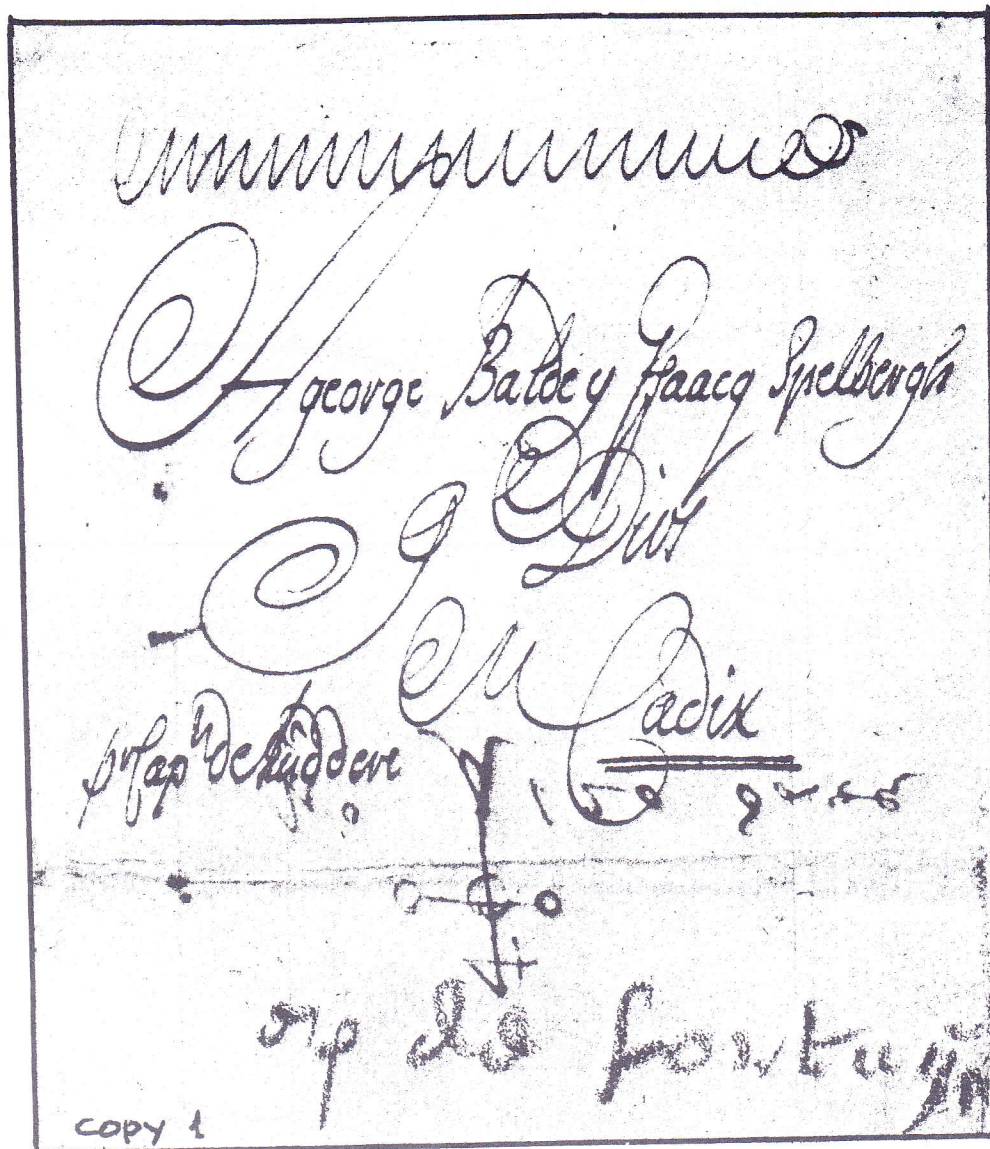 A george Balde y Jsaacq Spelbergh
G Dios
M Cadix
pr Capn De Riddere
op de fortuijn
COPY 1